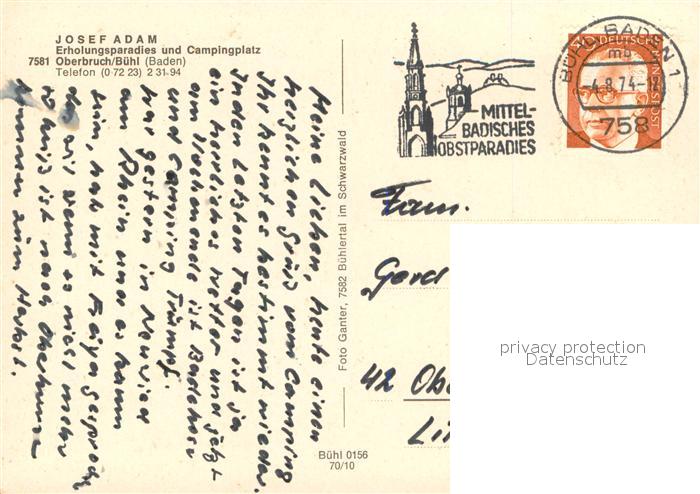 JOSEF ADAM
Erholungsparadies und Campingplatz
7581 Oberbruch/Bühl (Baden)
Telefon (0 72 23) 2 31-94
Meine Lieben, heute einen
herzlichen Gruß vom Camping
Ihr kennt es bestimmt wieder.
In den letzten Tagen ist ja
ein herrliches Wetter und jetzt
am Wochenende ist Badehose
und Camping Trumpf.
War gestern in
am Rhein und es kaum
sein, hab mit gesproche
das erst wenn es nicht mehr
so heiß ist nach
kommen zum Herbst.
Foto Ganter, 7582 Bühlertal im Schwarzwald
Bühl 0156
70/10
MITTEL-
BADISCHES
OBSTPARADIES
BÜHL BADEN 1
mb
-4.8.74-
758
DEUTSCHE
BUNDESPOST
Fam.
Gerd
42 Obe
Li
privacy protection
Datenschutz